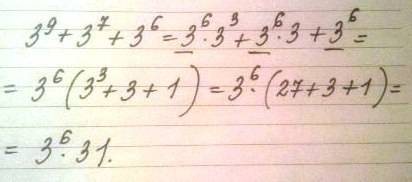 3⁹ + 3⁷ + 3⁶ = 3⁶ · 3³ + 3⁶ · 3 + 3⁶ =
= 3⁶ (3³ + 3 + 1) = 3⁶ · (27 + 3 + 1) =
= 3⁶ · 31.